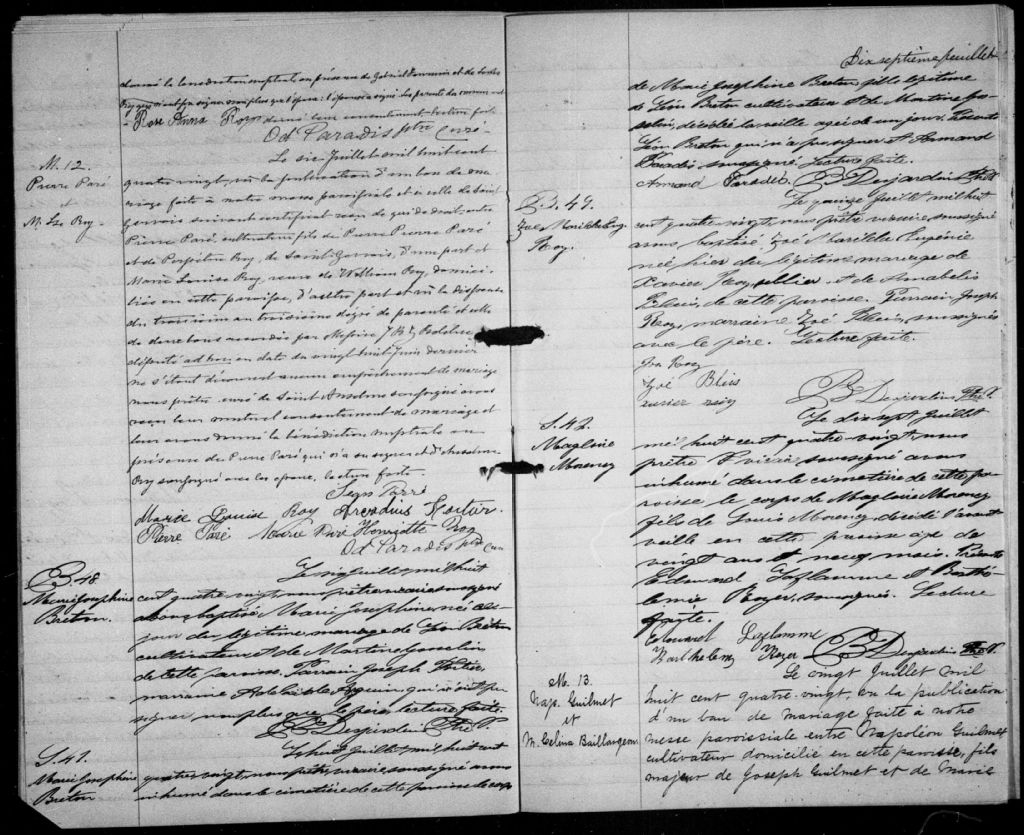 donné la bénédiction nuptiale en présence de Gabriel et de Louis
Roy qui n'ont pu signer non plus que l'époux; l'épouse a signé
Rose Anna Roy donné leur consentement lecture faite
Od Paradis ptre curé
M. 12.
Pierre Paré
et
M. Ls Roy
Le six Juillet mil huit cent
quatre vingt, vu la publication d'un ban de ma
riage faite à notre messe paroissiale et à celle de Saint
Gervais suivant certificat de qui de droit, entre
Pierre Paré, cultivateur fils de Pierre Pierre Paré
et de Perpétue Roy, de Saint Gervais, d'une part et
Marie Louise Roy, veuve de William Roy, domici
liés en cette paroisse, d'autre part et vu la dispense
du troisième au troisième degré de parenté
accordée par Messire J Bte
député ad hoc, en date du vingt huit Juin dernier
ne s'étant découvert aucun empêchement de mariage
nous prêtre curé de Saint Anselme soussigné avons
reçu leur mutuel consentement de mariage et
leur avons donné la bénédiction nuptiale en
présence de Pierre Paré qui n'a su signer et d'
Roy soussigné avec les époux, lecture faite.
Jean Parré
Marie Louise Roy Arcadius
Pierre Paré Marie Paré Henriette Roy
Od Paradis ptre curé
B. 48
Marie Josephine
Breton.
Le six juillet mil huit
cent quatre vingt, nous prêtre vicaire soussigné
avons baptisé, Marie Josephine, née ce
jour du légitime mariage de Léon Breton
cultivateur et de Martine Gosselin
de cette paroisse. Parrain Joseph
marraine Adelaide qui n'ont pu
signer non plus que le père. Lecture faite.
B Desjardins Ptre V.
S. 41.
Marie Josephine
Breton
Le huit Juillet mil huit cent
quatre vingt, nous prêtre vicaire, soussigné avons
inhumé dans le cimetière de cette paroisse le corps
Dix septième feuillet
de Marie Josephine Breton fille légitime
de Léon Breton cultivateur et de Martine Gos
selin, décédée la veille agée de un jour. Présents
Léon Breton qui n'a pu signer et Armand
Paradis, soussigné. Lecture faite.
Armand Paradis. B Desjardins Ptre V.
B. 49.
Zoé Marilda Eug.
Roy.
Le quinze Juillet mil huit
cent quatre vingt, nous prêtre vicaire soussigné
avons baptisé, Zoé Marilda Eugénie
née hier du légitime mariage de
Xavier Roy, sellier, et de Annabelis
de cette paroisse. Parrain, Joseph
Roy, marraine Zoé soussignés
avec le père. Lecture faite.
Jos Roy
Zoé
xavier roy
B Desjardins Ptre V.
S. 42.
Magloire
Morency
Le dix sept Juillet
mil huit cent quatre-vingt, nous
prêtre Vicaire, soussigné avons
inhumé dans le cimetière de cette pa
roisse le corps de Magloire Morency
fils de Louis Morency, décédé l'avant
veille en cette paroisse agé de
vingt ans et neuf mois. Présents
Edouard Laflamme et Barthé
lemie Royer, soussignés. Lecture
faite.
Edouard Laflamme
Barthelemy Royer B Desjardins Ptre V.
M. 13.
Nap. Guilmet
et
M. Celina Baillargeon
Le vingt Juillet mil
huit cent quatre-vingt, vu la publication
d'un ban de mariage faite à notre
messe paroissiale entre Napoléon Guilmet
cultivateur domicilié en cette paroisse, fils
majeur de Joseph Guilmet et de Marie